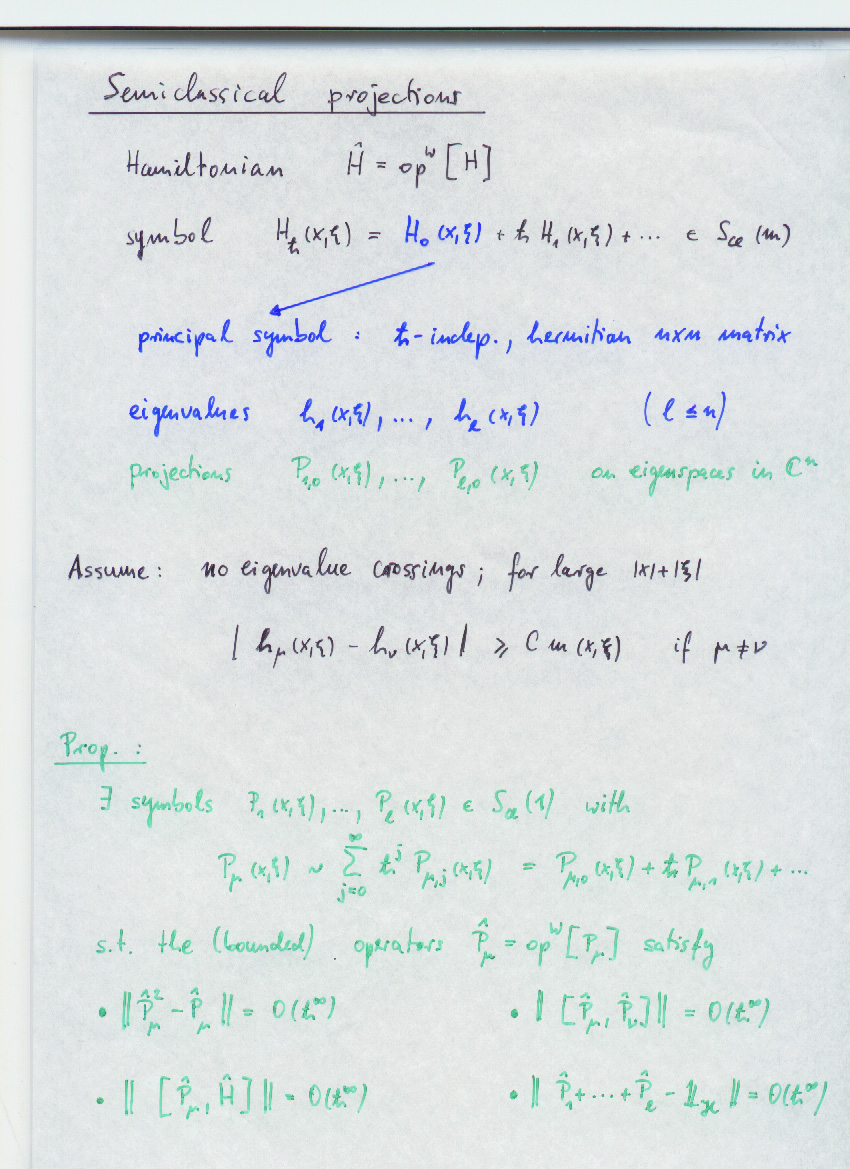 Semiclassical projections
Hamiltonian Ĥ = op^w [H]
symbol H_ħ(x,ξ) = H_0(x,ξ) + ħ H_1(x,ξ) + ... ∈ S_cl(m)
principal symbol : ħ-indep., hermitian n×n matrix
eigenvalues h_1(x,ξ), ..., h_l(x,ξ) (l ≤ n)
projections P_{1,0}(x,ξ), ..., P_{l,0}(x,ξ) on eigenspaces in ℂ^n
Assume : no eigenvalue crossings ; for large |x|+|ξ|
| h_μ(x,ξ) - h_ν(x,ξ) | ≥ C m(x,ξ) if μ ≠ ν
Prop. :
∃ symbols P_1(x,ξ), ..., P_l(x,ξ) ∈ S_cl(1) with
P_μ(x,ξ) ~ ∑_{j=0}^∞ ħ^j P_{μ,j}(x,ξ) = P_{μ,0}(x,ξ) + ħ P_{μ,1}(x,ξ) + ...
s.t. the (bounded) operators P̂_μ = op^W [P_μ] satisfy
• ‖ P̂_μ^2 - P̂_μ ‖ = O(ħ^∞) • ‖ [P̂_μ, P̂_ν] ‖ = O(ħ^∞)
• ‖ [P̂_μ, Ĥ] ‖ = O(ħ^∞) • ‖ P̂_1 + ... + P̂_l - 𝟙_ℋ ‖ = O(ħ^∞)